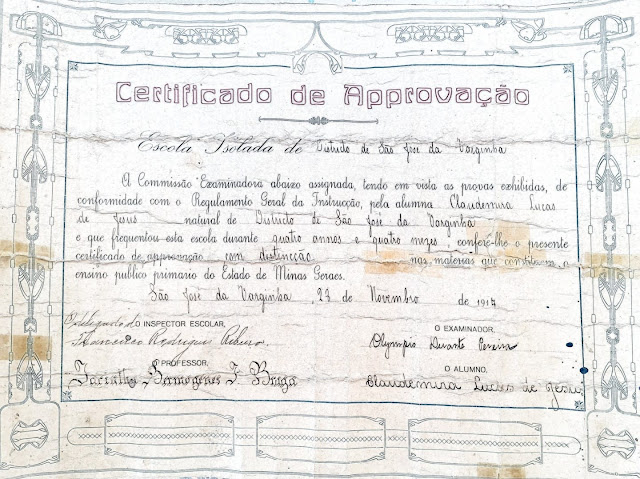 Certificado de Approvação
Escola Isolada de Districto de São José da Varginha
A Commissão Examinadora abaixo assignada, tendo em vista as provas exhibidas, de
conformidade com o Regulamento Geral da Instrucção, pela alumna Claudemira Lucas
de Jesus natural de Districto de São José da Varginha
e que frequentou esta escola durante quatro annos e quatro mezes, confere-lhe o presente
certificado de approvação com distincção nas materias que constituem o
ensino publico primario do Estado de Minas Geraes.
São José da Varginha, 23 de Novembro de 1917
O INSPECTOR ESCOLAR.
Francisco Rodrigues Ribeiro
O EXAMINADOR.
Olympio Duarte Pereira
O PROFESSOR.
Hermogenes F. Braga
O ALUMNO.
Claudemira Lucas de Jesus